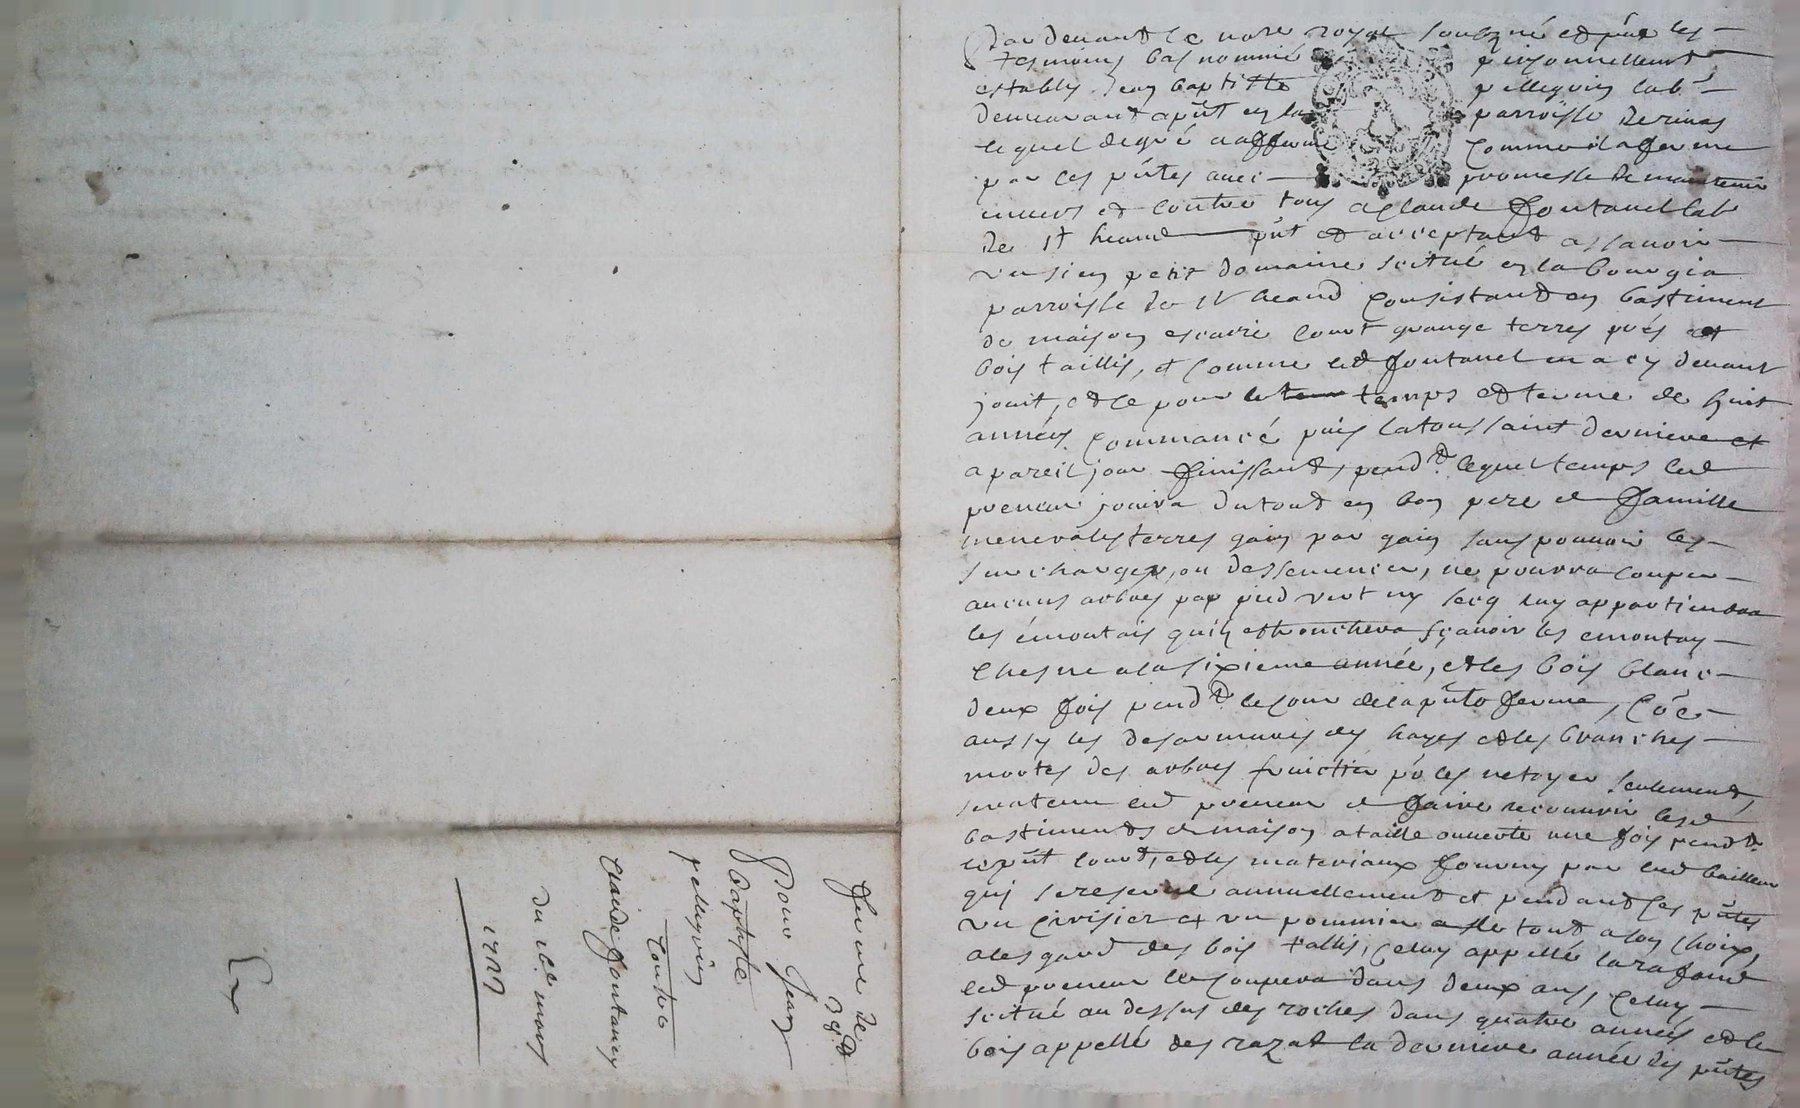 Par devant le no͞re royal soubzné et p͞nt les
tesmoins bas nommé personnellemt
estably Jean baptiste pelleguin labr
demeurant ap͞nt en la parroisse de rivas
lequel de gré a afferme comme il afferme
par ces p͞ntes avec promesse de maintenir
envers et contre tous a Claude fontanel labr
de st heand p͞nt et acceptant assavoir
un sien petit domaine scitué en la bourgia
parroisse de st heand consistant en bastiment
de maison escurie court grange terres prés et
bois taillis, et comme led fontanel en a cy devant
jouit, et ce pour le temps et terme de huit
années commancé puis la toussaint derniere et
a pareil jour finissant, pendt lequel temps led
preneur jouira du tout en bon pere de famille
menera les terres gain par gain sans pouvoir les
surcharger, ou dessemencer, ne pourra couper
aucuns arbres par pied vert ny secq luy appartiendra
les émontais qu'il esbrouchera sçavoir les emontay
chesne a la sixieme année, et les bois blanc
deux fois pendt le cour de la p͞nte ferme, co͞e
aussy les desarmures des hayes et les branches
mortes des arbres fruictier po͞ les netoyer seulement,
sera tenu led preneur de faire recouvrir lesd
bastiments de maison a taille ouverte une fois pendt
le p͞nt court, et les materiaux fourny par led bailleur
qui se reserve annuellement et pendant ces p͞ntes
un cirisier et un pommier le tout a son choix,
a lesgard des bois tallis, celuy appellé la rafforie
led preneur le coupera dans deux ans, celuy
scitué au dessus des roches dans quatre années et le
bois appellé des razat la derniere année des p͞ntes
ferme de
Pour Jean
Baptiste
pelleguin
Contre
Claude fontaney
du mars